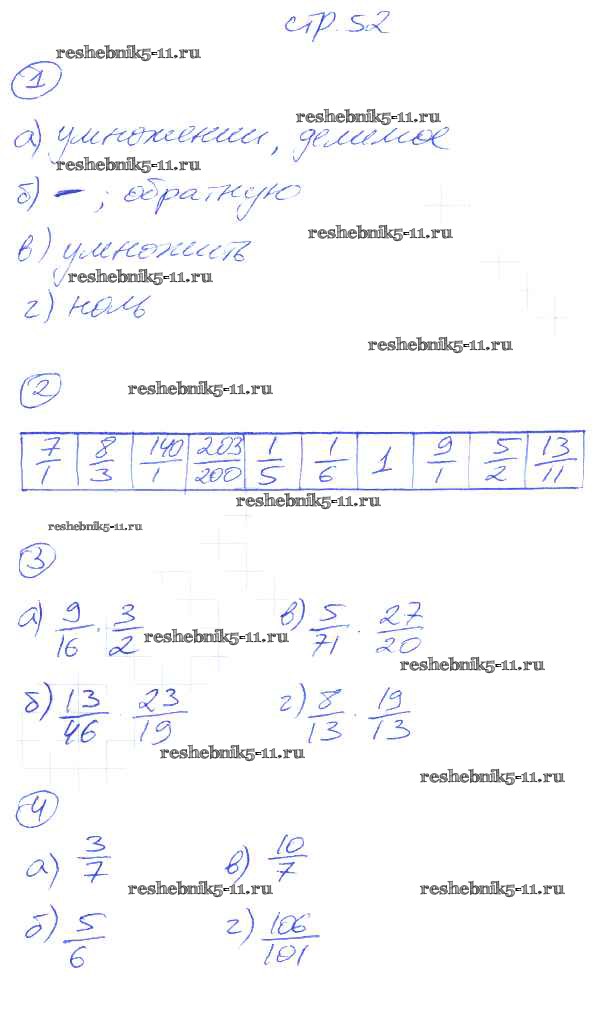 стр. 52
reshebnik5-11.ru
1
reshebnik5-11.ru
а) умножении, делимое
reshebnik5-11.ru
б) - ; обратную
reshebnik5-11.ru
в) умножить
reshebnik5-11.ru
г) ноль
reshebnik5-11.ru
2 reshebnik5-11.ru
7/1 8/3 140/1 203/200 1/5 1/6 1 9/1 5/2 13/11
reshebnik5-11.ru
reshebnik5-11.ru
3
а) 9/16 · 3/2 в) 5/71 · 27/20
reshebnik5-11.ru
reshebnik5-11.ru
б) 13/46 · 23/19 г) 8/13 · 19/13
reshebnik5-11.ru
reshebnik5-11.ru
4
а) 3/7 в) 10/7
reshebnik5-11.ru reshebnik5-11.ru
б) 5/6 г) 106/101